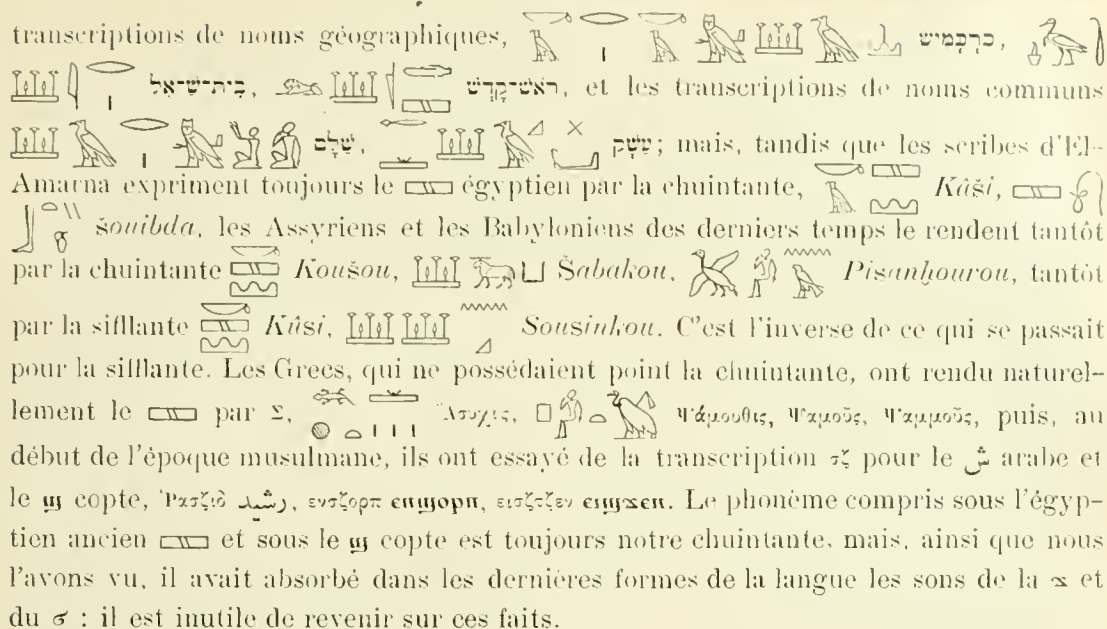 transcriptions de noms géographiques, כרכמיש,
בית־שׁ־אל, ראש־קדש, et les transcriptions de noms communs
שלם, עשק; mais, tandis que les scribes d'El-
Amarna expriment toujours le égyptien par la chuintante, Kâši,
šouibda, les Assyriens et les Babyloniens des derniers temps le rendent tantôt
par la chuintante Koušou, Šabakou, Pisanḫourou, tantôt
par la sifflante Kûsi, Sousinkou. C'est l'inverse de ce qui se passait
pour la sifflante. Les Grecs, qui ne possédaient point la chuintante, ont rendu naturel-
lement le par Σ, Ἄσυχις, Ψάμουθις, Ψαμοῦς, Ψαμμοῦς, puis, au
début de l'époque musulmane, ils ont essayé de la transcription σζ pour le ش arabe et
le ϣ copte, Ῥασζιδ رشيد, ενσζορπ ⲉⲛϣⲟⲣⲡ, εισζτζεν ⲉⲓϣϫⲉⲛ. Le phonème compris sous l'égyp-
tien ancien et sous le ϣ copte est toujours notre chuintante, mais, ainsi que nous
l'avons vu, il avait absorbé dans les dernières formes de la langue les sons de la ϫ et
du ϭ : il est inutile de revenir sur ces faits.